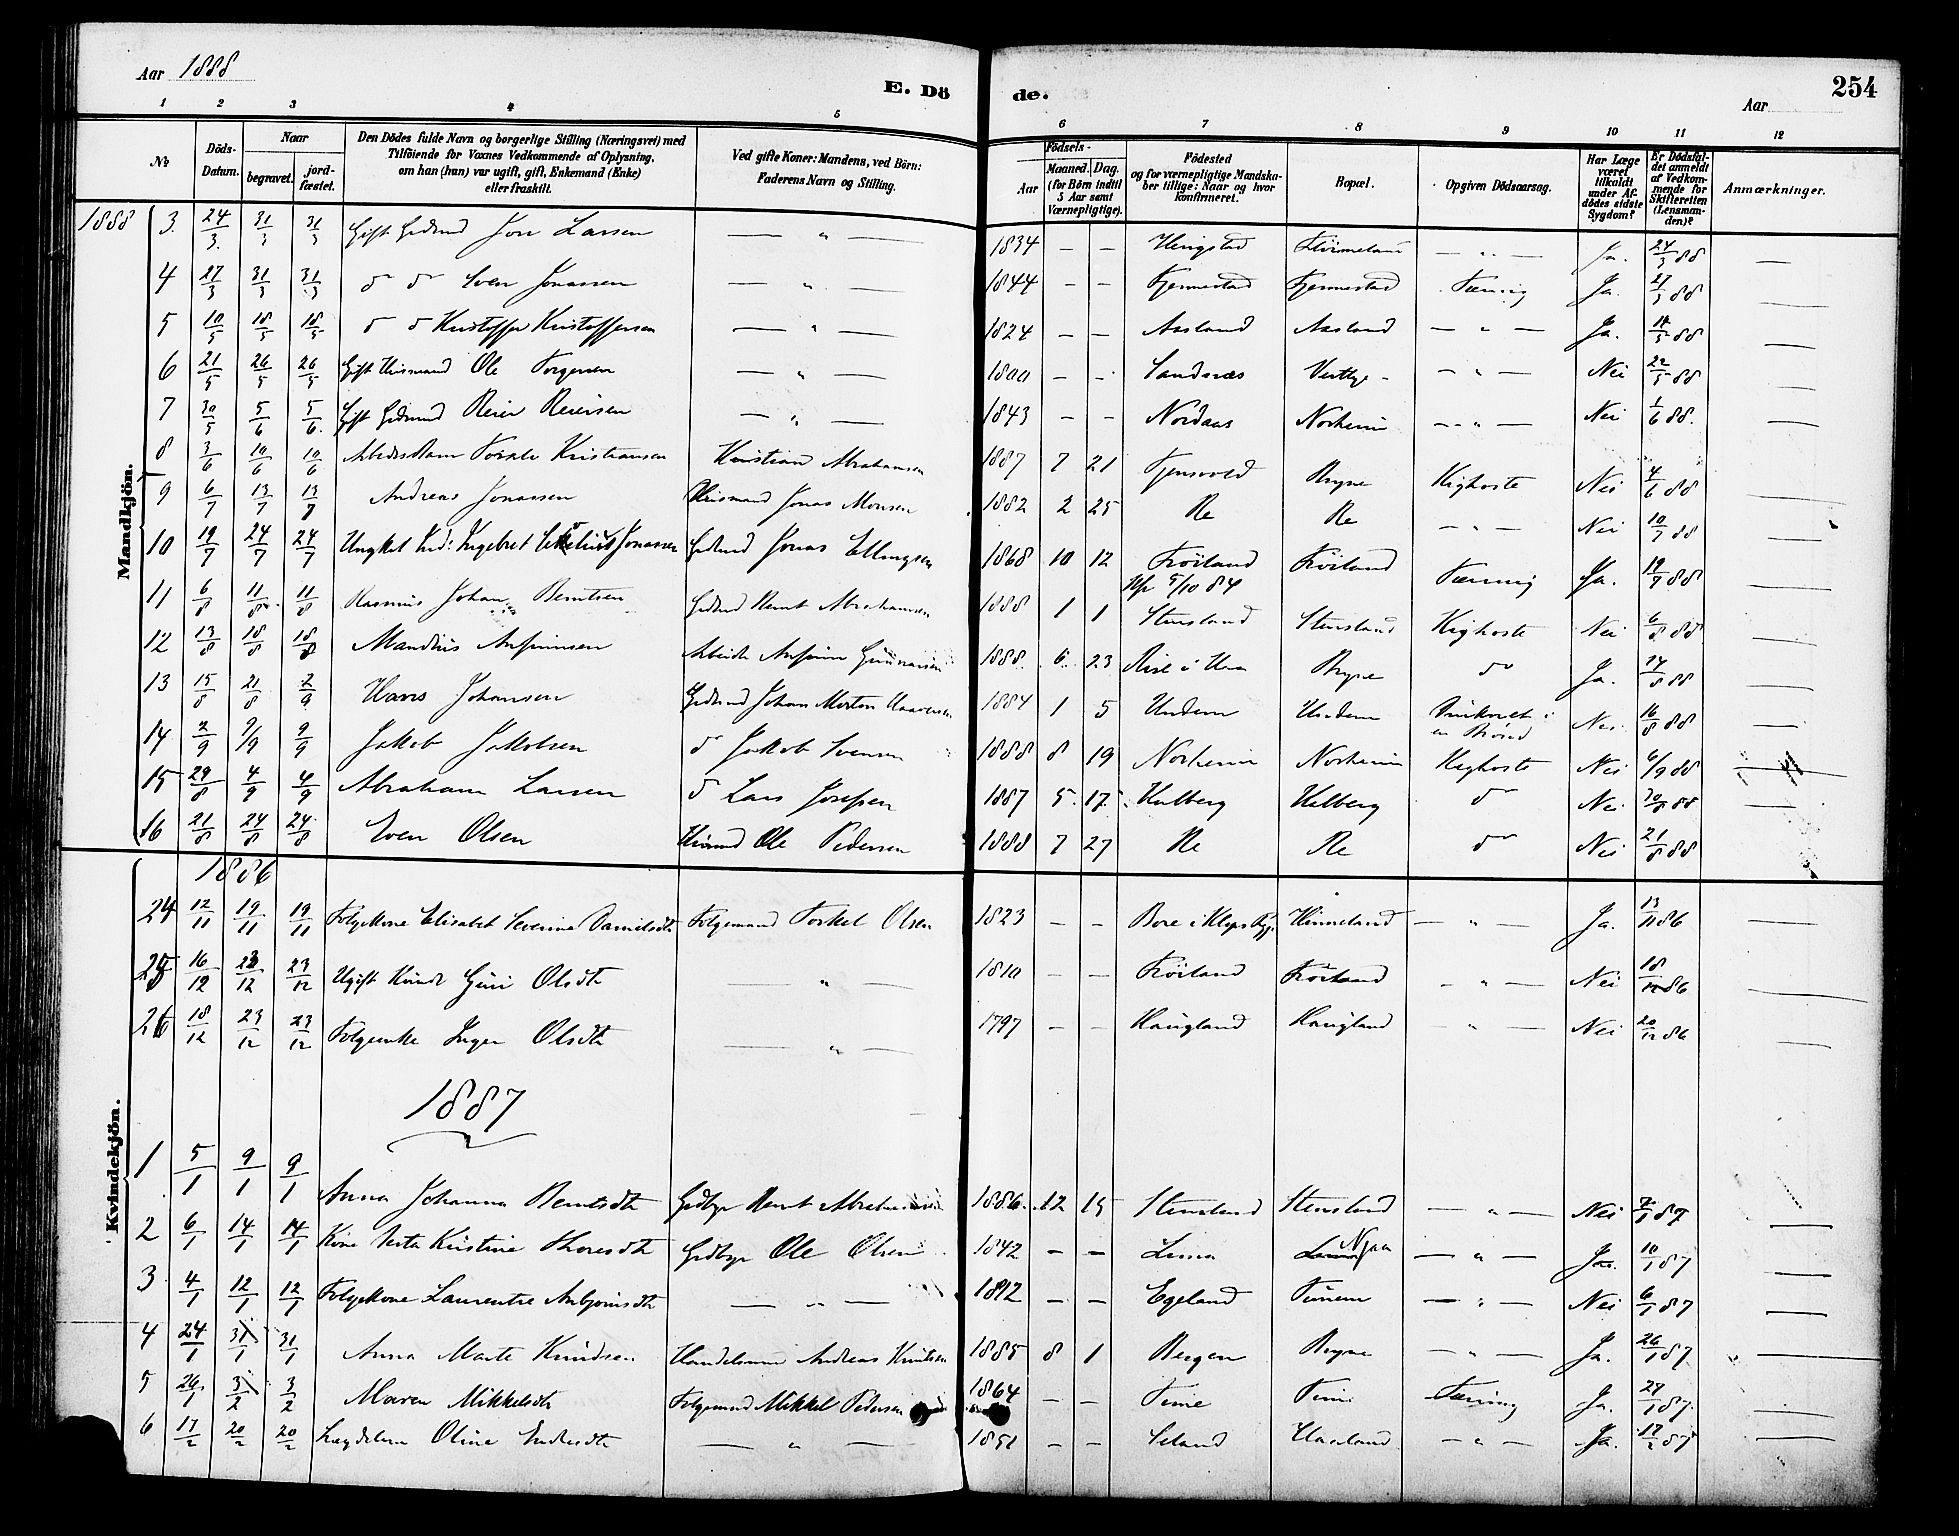 Aar 1888
E. Dö
de.
254
Aar
1 2 3 4 5 6 7 8 9 10 11 12
No
Döds-Datum.
Naar
begravet.
jord-fæstet.
Den Dödes fulde Navn og borgerlige Stilling (Næringsvei) med
Tilföiende for Voxnes Vedkommende af Oplysning,
om han (hun) var ugift, gift, Enkemand (Enke)
eller fraskilt.
Ved gifte Koner: Mandens, ved Börn:
Faderens Navn og Stilling.
Födsels-
Aar
Maaned. Dag.
(for Börn indtil
5 Aar samt
Værnepligtige).
Födested
og for værnepligtige Mandska-
ber tillige: Naar og hvor
konfirmeret.
Bopæl.
Opgiven Dödsaarsag.
Har Læge
været
tilkaldt
under Af-
dödes sidste
Sygdom?
Er Dödsfal-
det anmeldt
af Vedkom-
mende for
Skifteretten
(Lensman-
den)?
Anmærkninger.
Mandkjön.
1888 3 24/3 31/3 31/3 Gift Grdmd Jon Larsen — " — 1834 — — — " — Ja. 24/3 88 —
4 27/3 31/3 31/3 do do Sven Jonassen — " — 1844 — — Fjermestad Fjermestad Tæring Ja. 27/3 88 —
5 10/5 18/5 18/5 do do Kristoffer Kristoffersen — " — 1824 — — Aasland Aasland — " — Ja. /5 88 —
6 21/5 26/5 26/5 Gift Husmand Ole Torgersen — " — — — Sandnæs — " — Nei 22/5 88 —
7 30/5 5/6 5/6 Gift Grdmd Reier Reiersen — " — 1843 — — Nordaas Norheim — " — Nei 1/6 88. —
8 3/6 10/6 10/6 Kristiansen Kristian Abrahamsen 1887 7 21 Bryne Kighoste Nei 4/6 88 —
9 6/7 13/7 13/7 Andreas Jonassen Husmand Jonas Monsen 1882 2 25 Re Re — " — Nei 10/7 88 —
10 19/7 24/7 24/7 Ungkal Ingebret Jonassen Grdmd Jonas Ellingsen 1868 10 12 Fröiland Fröiland Tæring Ja. 19/7 88 —
5/10 84
11 6/8 11/8 11/8 Rasmus Johan Berntsen Grdmd Bernt Abrahamsen 1888 1 1 Stensland Stensland Kighoste Nei 6/8 88 —
12 13/8 18/8 18/8 Mandius Arbeider Gunnarsen 1888. 6 23 Bryne do Ja. 14/8 88 —
13 15/8 21/8 2/9 Hans Johansen Grdmd Johan Morten 1884 1 5 Undem Undem Druknet i Nei 16/8 88 —
en Brönd
14 2/9 9/9 9/9 Jakob Jakobsen do Jakob Svensen 1888 8 19 Norheim Norheim Kighoste Nei 6/9 88 —
15 29/8 4/9 4/9 Abraham Larsen do Lars Josefsen 1887 5 17 do Nei 30/8 88 —
16 21/8 24/8 24/8 Sven Olsen Husmd Ole Pedersen 1888 7 27 Re Re do Nei 21/8 88
Kvindekjön.
1886
24 12/11 19/11 19/11 Folgekone Elisabet Severine Danielsdtr Folgemand Torkel Olsen 1823 — — Bore i Kleps Pgj. Hinneland — " — Ja. 13/11 86 —
25 16/12 23/12 23/12 Ugift Kvinde Guri Olsdtr — " — 1810 — — Fröiland Fröiland — " — Nei 18/12 86 —
26 18/12 23/12 23/12 Folgeenke Inger Olsdtr — " — 1797 — — Haugland Haugland — " — Nei 20/12 86 —
1887
1 5/1 9/1 9/1 Anna Johanna Berntsdtr Grdbgr Bernt Abrahamsen 1886. 12 15 Stensland Stensland — " — Nei 7/1 87 —
2 6/1 14/1 14/1 Kone Berta Kristine Thoresdtr Grdbgr Ole Olsen 1842 — — Lima Njaa — " — Ja. 10/1 87 —
3 4/1 12/1 12/1 Folgekone Laurentse Asbjørnsdtr — " — 1812 — — Egeland Tunem — " — Nei 6/1 87 —
4 24/1 31/1 31/1 Anna Marte Knudsen Handelsmand Andreas Knudsen 1885 8 1 Bergen Bryne — " — Ja. 26/1 87 —
5 26/1 3/2 3/2 Maren Mikkelsdtr Folgemand Mikkel Pedersen 1864 — — Time Time Tæring Ja. 27/1 87. —
6 17/2 20/2 20/2 Lægdslem Oline Endresdtr — " — 1851 — — Haaland — " — Ja. 17/2 87 —